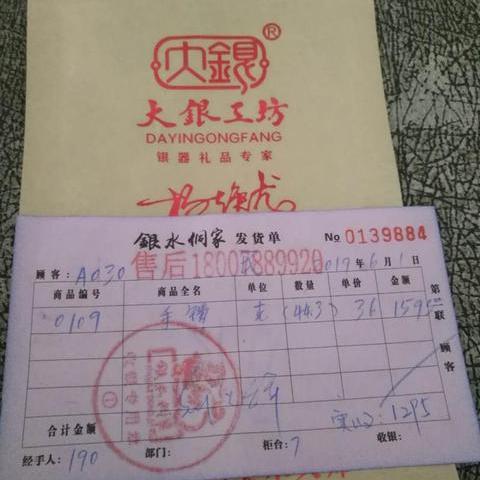 大銀®
大银工坊
DAYINGONGFANG
银器礼品专家
銀水侗家 发货单 No 0139884
顾客: A030 2019年6月1日
售后18008889920
商品编号 商品全名 单位 数量 单价 金额
0109 手镯 克 (44.3) 36 1595
第一联 顾客
合计金额 实收: 1295
经手人: 190 部门: 柜台: 7 收银: